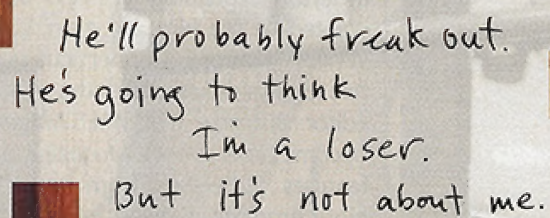 He'll probably freak out.
He's going to think
I'm a loser.
But it's not about me.